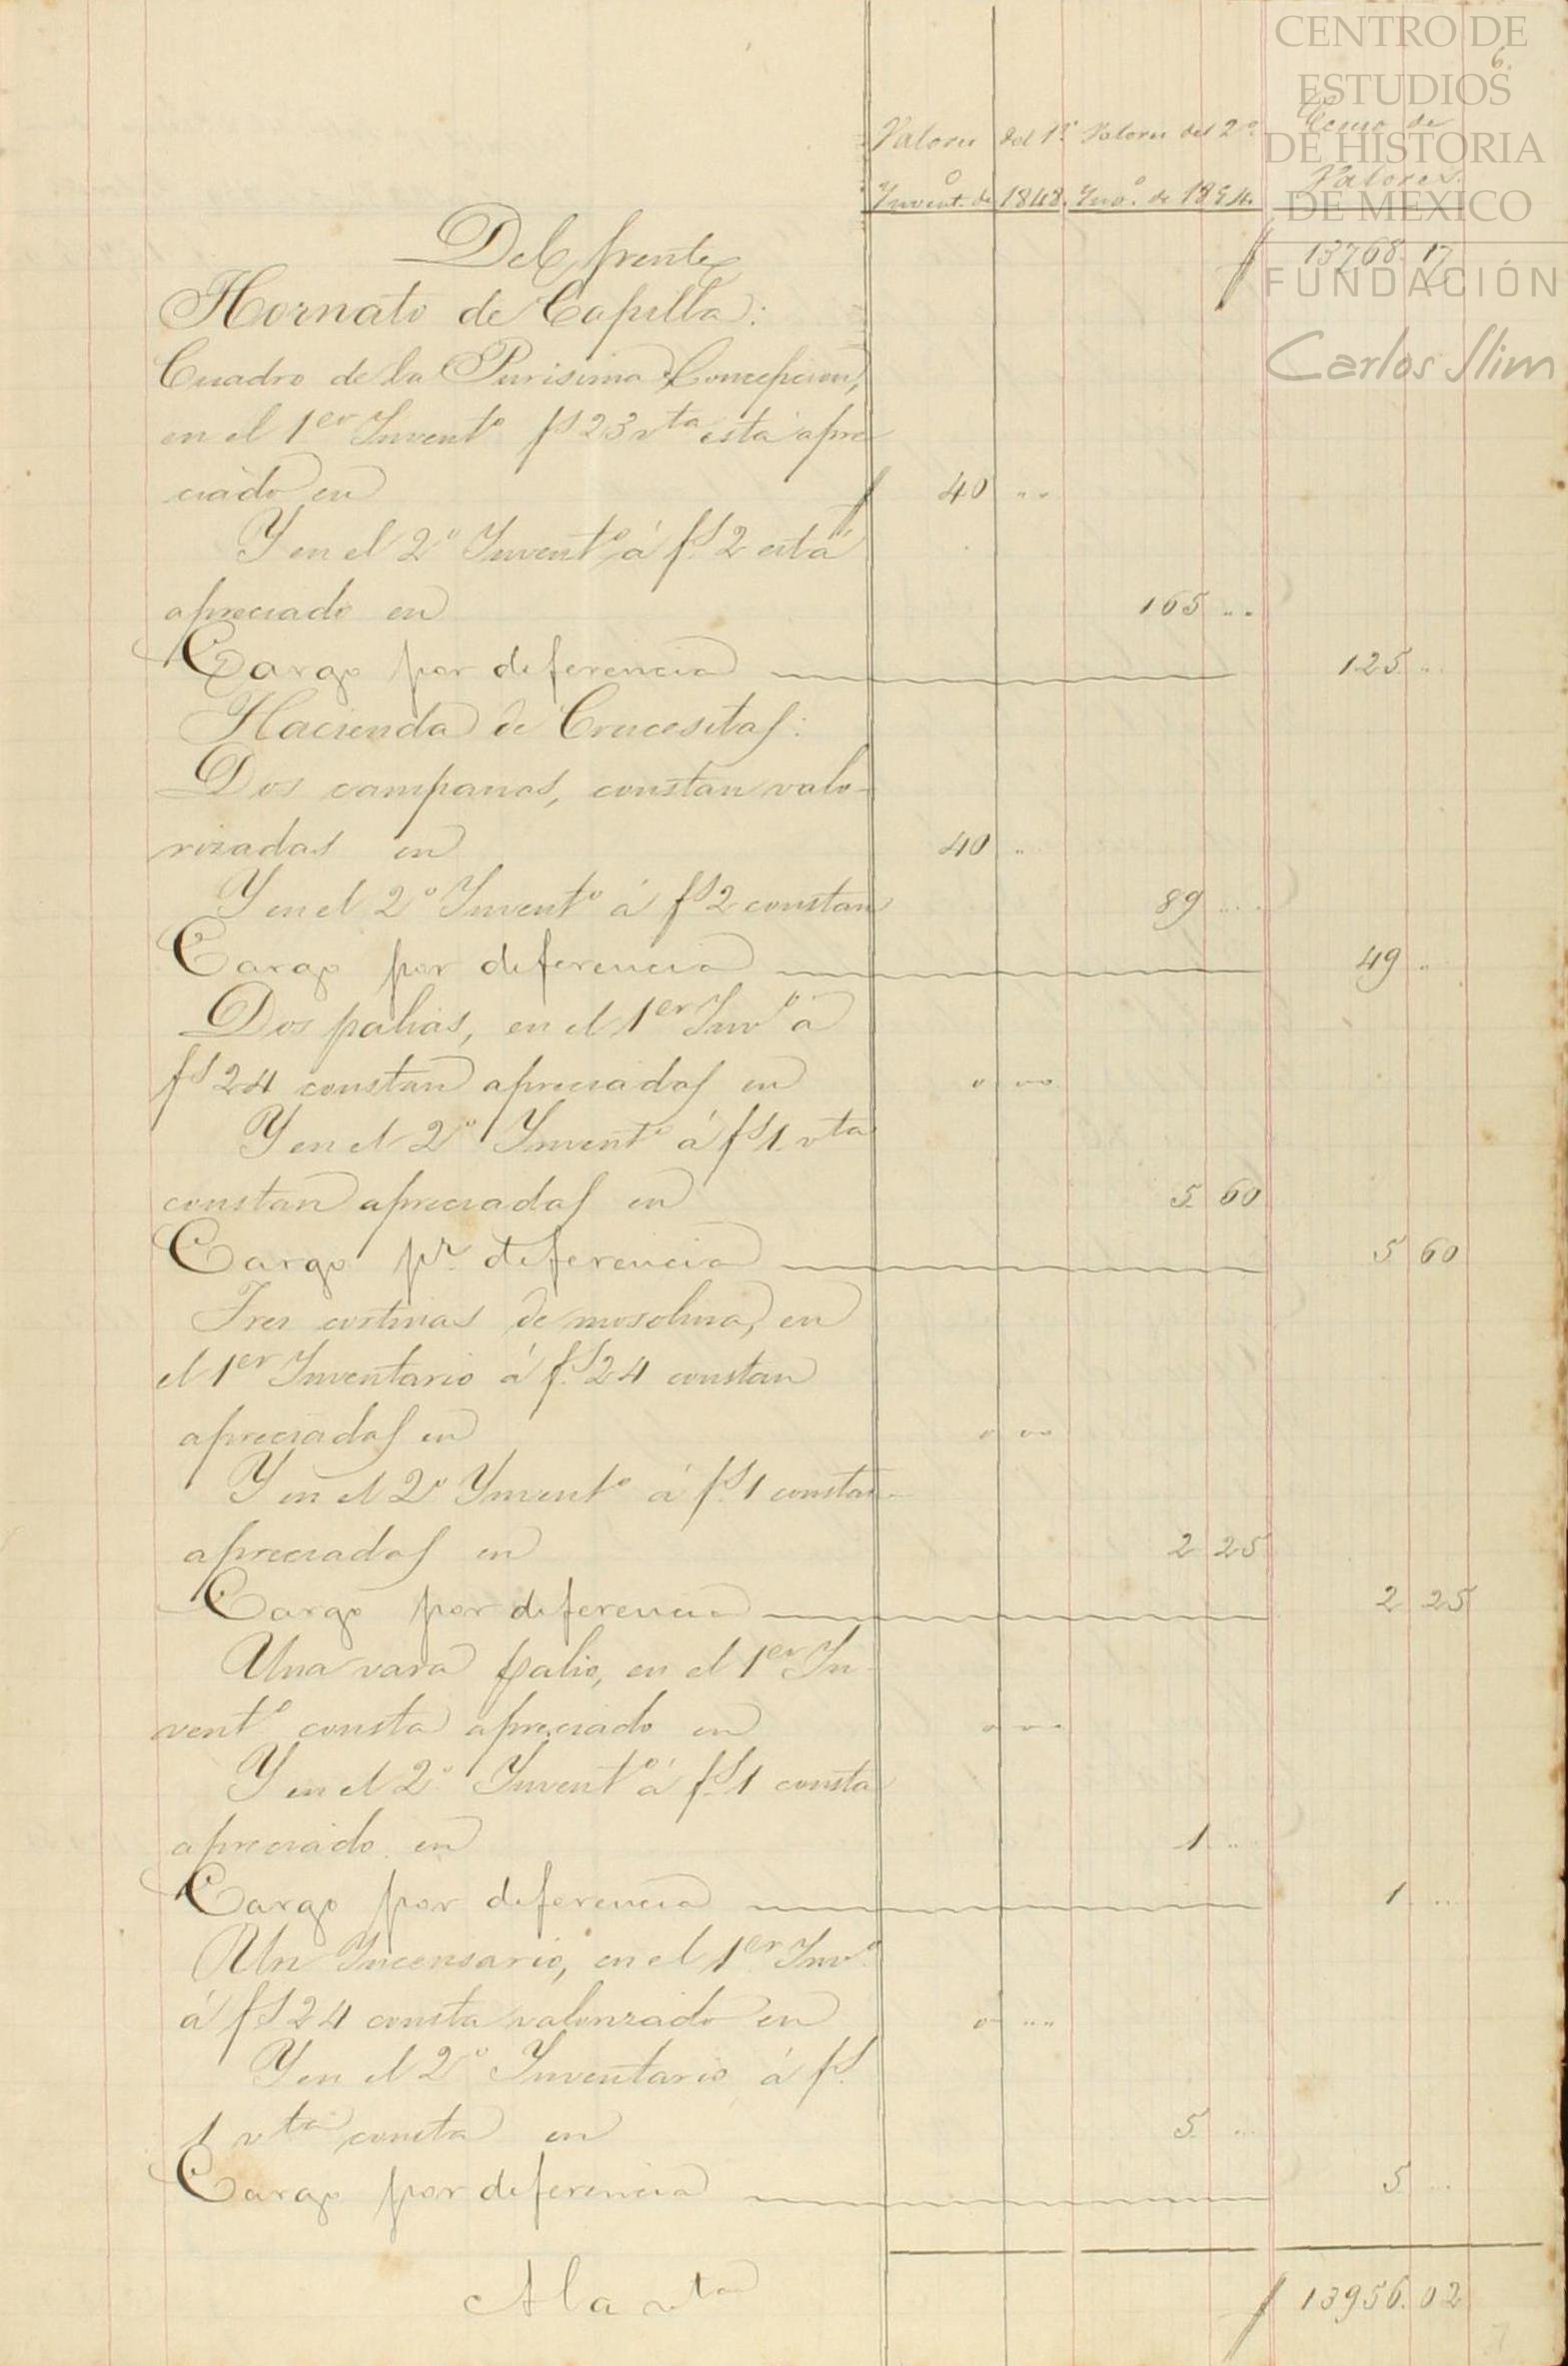 CENTRO DE
ESTUDIOS
DE HISTORIA
DE MEXICO
FUNDACIÓN
Carlos Slim
6.
Valores del 1º Valores del 2º
Invent.º de 1848. Inv.º de 1854. Valores.
Del frente $ 13768. 17
Hornato de Capilla:
Cuadro de la Purisima Concepcion,
en el 1er Invent.º fs 23 vta está apre
ciado en $ 40 ..
Y en el 2º Invent.º á fs. 2 está
apreciado en 165 ..
Cargo por diferencia 125 ..
Hacienda de Crucesitas:
Dos campanas, constan valo-
rizadas en 40 ..
Y en el 2º Invent.º á fs 2 constan 89 ..
Cargo por diferencia 49 ..
Dos palias, en el 1er Inv.º á
fs 24 constan apreciadas en 0 00
Y en el 2º Invent.º á fs 1 vta
constan apreciadas en 5 60
Cargo pr. diferencia 5 60
Tres cortinas de mosolina, en
el 1er Inventario á fs. 24 constan
apreciadas en 0 00
Y en el 2º Ynvent.º á fs. 1 constan
apreciadas en 2 25
Cargo por diferencia 2 25
Una vara palio, en el 1er In-
vent.º consta apreciado en 0 00
Y en el 2º Invent.º á fs. 1 consta
apreciado en 1 ..
Cargo por diferencia 1 ..
Un Incensario, en el 1er Inv.º
á fs 24 consta valorizado en 0 ..
Y en el 2º Inventario á fs.
1 vta consta en 5 ..
Cargo por diferencia 5 ..
A la vta $ 13956. 02